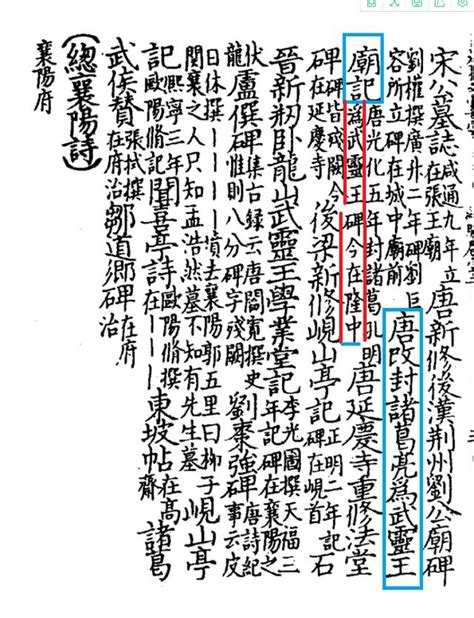 宋公墓誌咸通九年立在張王廟唐新修後漢荊州劉公廟碑
劉權撰廣卅二年碑劉巨容所立碑在城中廟前唐改封諸葛亮為武靈王
廟記唐光化五年封諸葛孔明為武靈王碑今在隆中唐延慶寺重修法堂
碑碑皆殘闕今在延慶寺後梁新修峴山亭記正明二年記石碑在峴首
晉新刱臥龍山武靈王學業堂記李光圖撰天福三年記碑在襄陽之
伏龍盧僎碑集古錄云唐閻寬撰史惟則八分碑字殘闕劉棗強碑唐詩紀事云皮
日休撰｜｜｜｜墳去襄陽郭五里曰柳子関襄之人只知孟浩然墓不知有先生墓峴山亭
記熙寧三年歐陽脩記聞喜亭詩歐陽脩撰詩在｜｜東坡帖在高齋諸葛
武侯贊張拭撰在府治鄒道鄉碑在府治
（總襄陽詩）
襄陽府